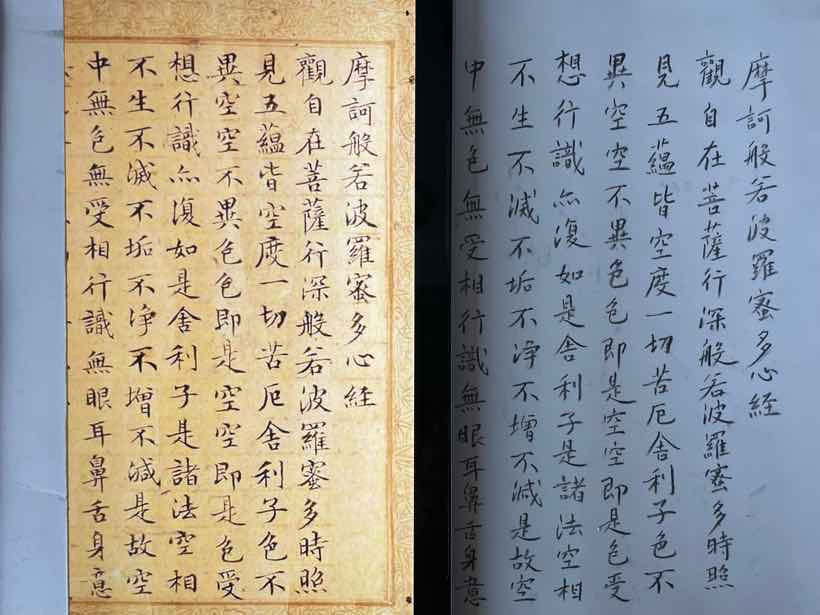 摩訶般若波羅蜜多心経
觀自在菩薩行深般若波羅蜜多時照
見五蘊皆空度一切苦厄舍利子色不
異空空不異色色即是空空即是色受
想行識亦復如是舍利子是諸法空相
不生不滅不垢不淨不增不減是故空
中無色無受相行識無眼耳鼻舌身意
摩訶般若波羅蜜多心経
觀自在菩薩行深般若波羅蜜多時照
見五蘊皆空度一切苦厄舍利子色不
異空空不異色色即是空空即是色受
想行識亦復如是舍利子是諸法空相
不生不滅不垢不淨不增不減是故空
中無色無受相行識無眼耳鼻舌身意